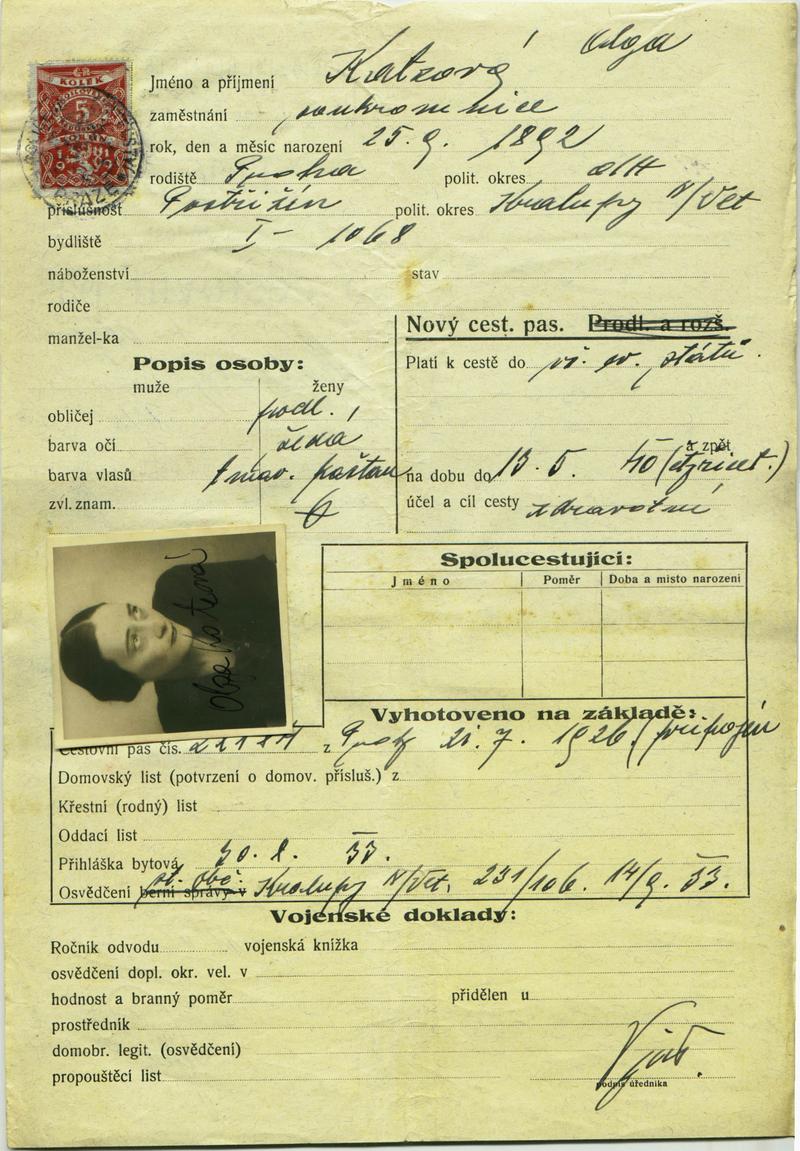 KOLEK
5
Jméno a příjmení Katzová Olga
zaměstnání soukromnice
rok, den a měsíc narození 25. 9. 1892
rodiště Praha polit. okres
příslušnost Postřižín polit. okres Kralupy n/Vlt
bydliště I - 1068
náboženství stav
rodiče
manžel-ka
Nový cest. pas. Prodl. a rozš.
Platí k cestě do států
Popis osoby:
muže ženy
obličej podl.
barva očí šedá
barva vlasů tmav. kaštan
zvl. znam.
a zpět
na dobu do 13. 5. 40 (čtyřicet.)
účel a cíl cesty zdravotní
Olga Katzová
Spolucestující:
Jméno Poměr Doba a místo narození
Vyhotoveno na základě:
Cestovní pas čís. z 21. 7. 1926 (připojen
Domovský list (potvrzení o domov. přísluš.) z
Křestní (rodný) list
Oddací list
Přihláška bytová 30. 33.
Osvědčení berní správy v Kralupy n/Vlt. 231/106. 14/9. 33.
Vojenské doklady:
Ročník odvodu vojenská knížka
osvědčení dopl. okr. vel. v
hodnost a branný poměr přidělen u
prostředník
domobr. legit. (osvědčení)
propouštěcí list
podpis úředníka